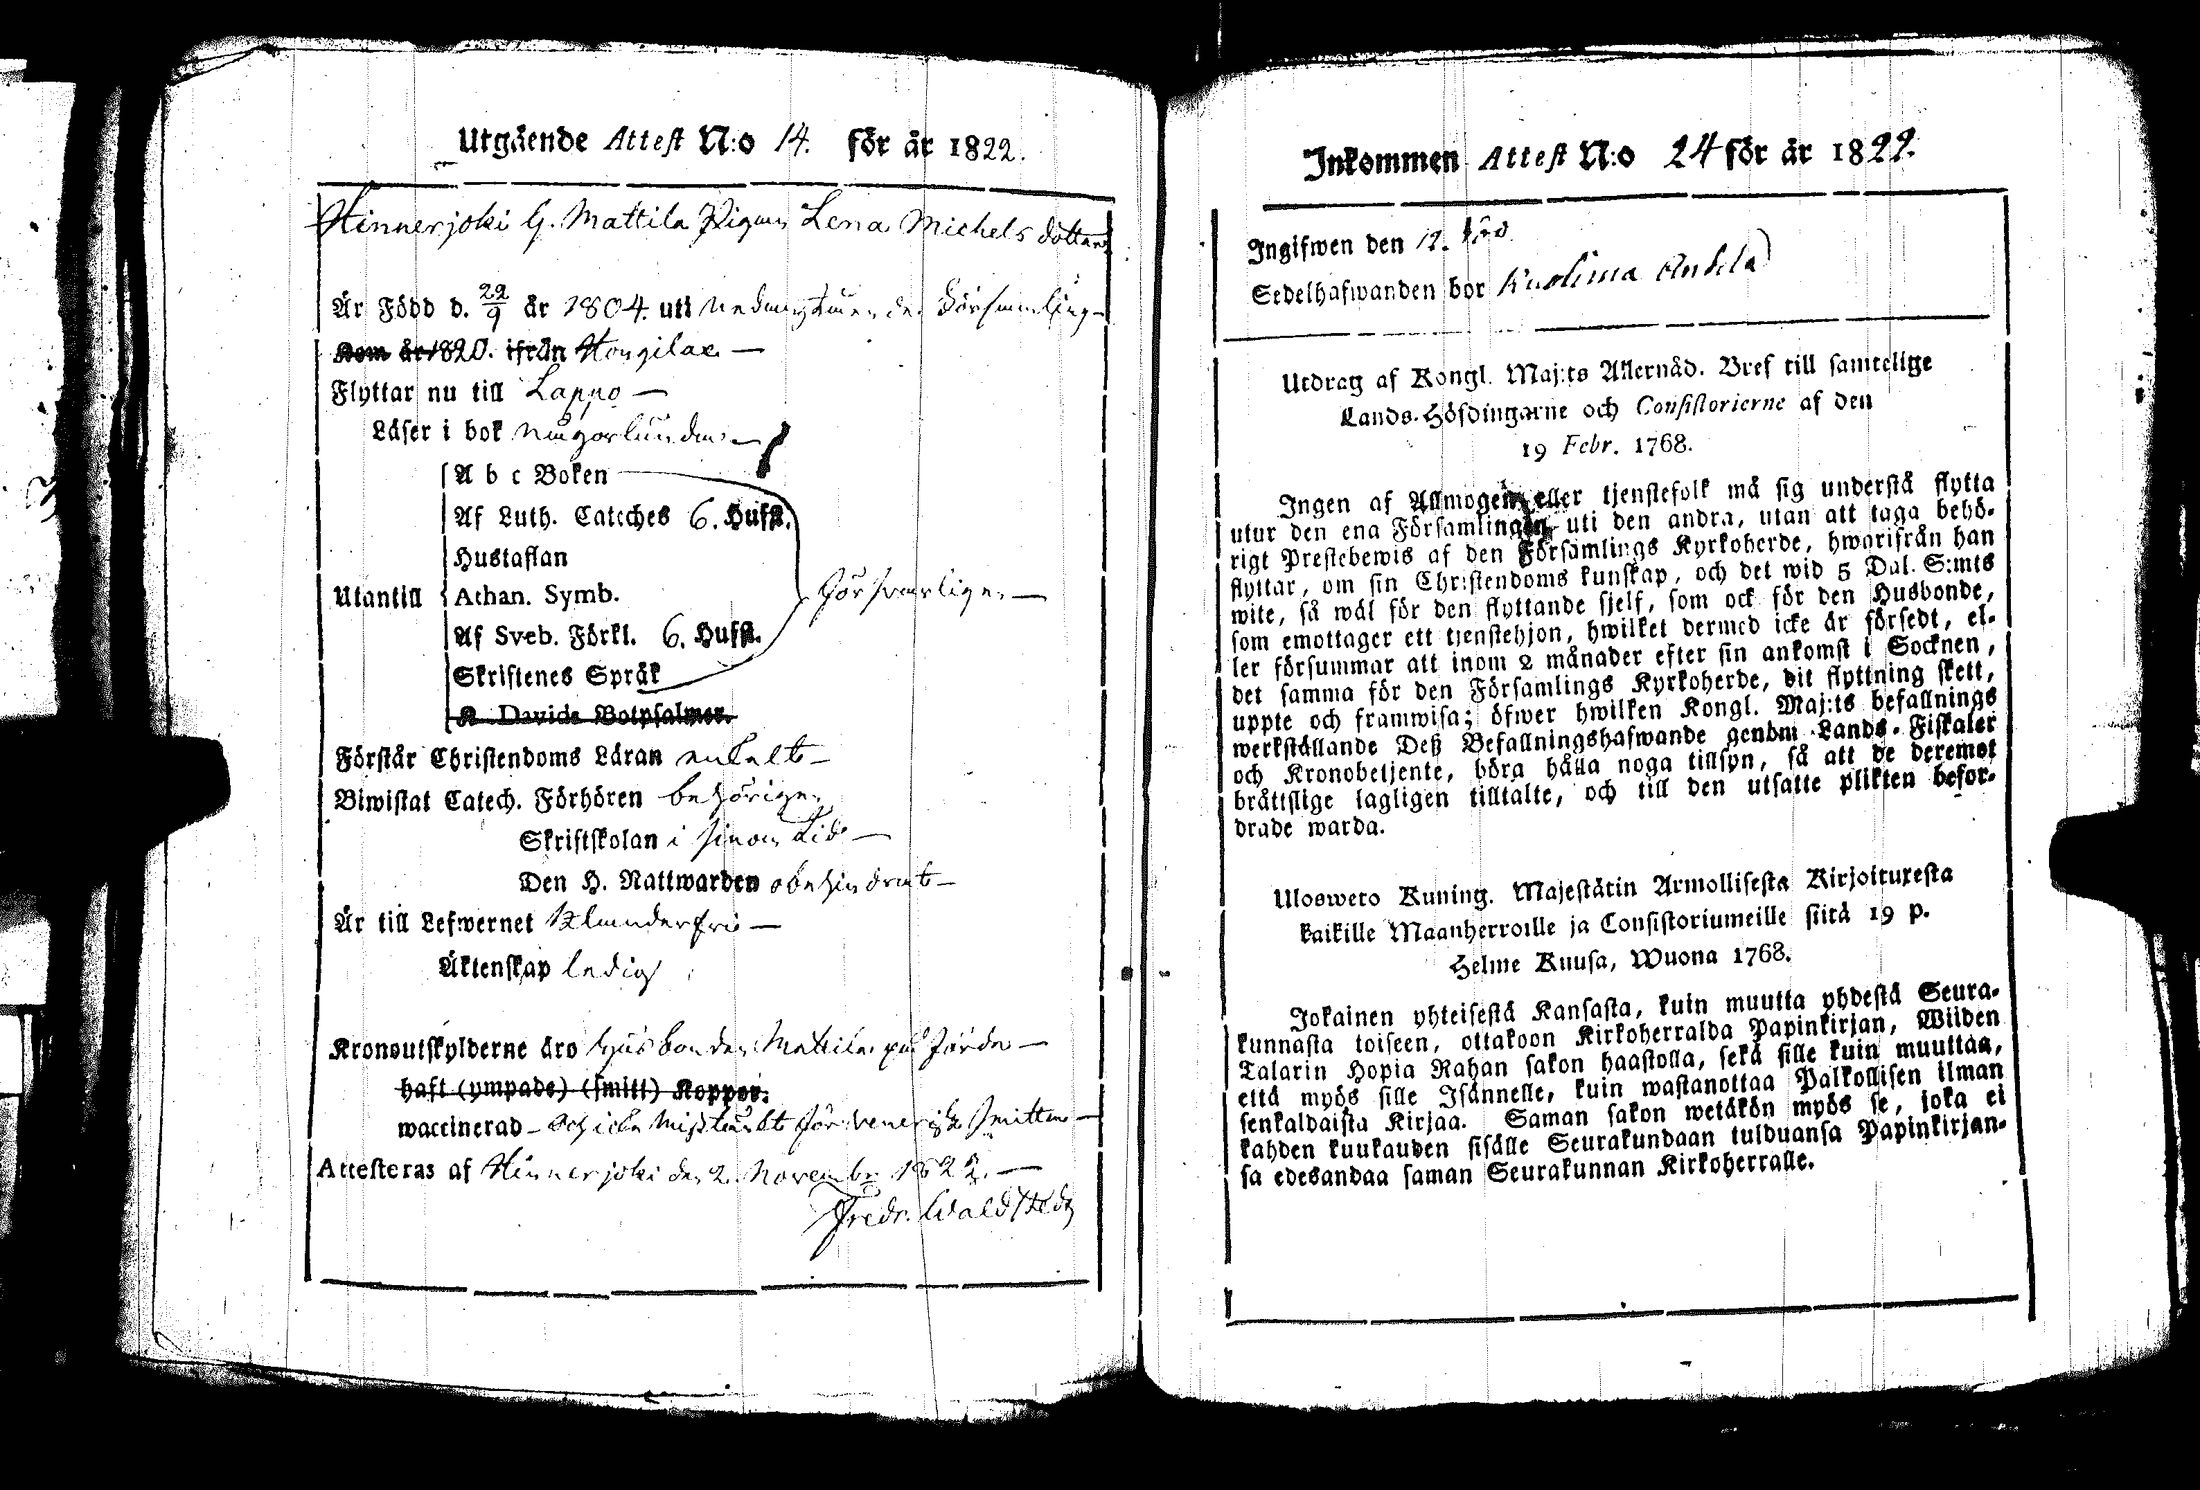 Utgående Attest N:o 14. för år 1822.
Hinnerjoki G. Mattila Pigan Lena Michels dotter
Är Född d. 22/9 år 1804. uti nedanstående Församling—
Kom år 1820. ifrån Hongilax —
Flyttar nu till Lappo —
Läser i bok någorlunda —
A b c Boken
Af Luth. Cateches 6. Hufst.
Hustaflan
Utantill Athan. Symb. försvarligen —
Af Sveb. Förkl. 6. Hufst.
Skriftenes Språk
K. Davids Botpsalmer.
Förstår Christendoms Läran enkelt —
Biwistat Catech. Förhören behörigen
Skriftskolan i sinom tid —
Den H. Nattwarden obehindrat —
Är till Lefwernet klanderfri —
Äktenskap ledig
Kronoutskylderne äro husbonden Mattila påförda —
haft (ympade) (smitt) Koppor.
waccinerad — och icke misstänkt för venerisk smitta —
Attesteras af Hinnerjoki den 2. Novembr 1822. —
Fredr. Waldstedt
Inkommen Attest N:o 24 för år 1822.
Ingifwen den 12.
Sedelhafwanden bor
Utdrag af Kongl. Maj:ts Allernåd. Bref till samtelige
Lands-Höfdingarne och Consistorierne af den
19 Febr. 1768.
Ingen af Allmogen eller tjenstefolk må sig understå flytta
utur den ena Församlingen uti den andra, utan att taga behö-
rigt Prestebewis af den Församlings Kyrkoherde, hwarifrån han
flyttar, om sin Christendoms kunskap, och det wid 5 Dal. S:mts
wite, så wäl för den flyttande sjelf, som ock för den Husbonde,
som emottager ett tjenstehjon, hwilket dermed icke är försedt, el-
ler försummar att inom 2 månader efter sin ankomst i Socknen,
det samma för den Församlings Kyrkoherde, dit flyttning skett,
uppte och framwisa; öfwer hwilken Kongl. Maj:ts befallnings
werkställande Deß Befallningshafwande genom Lands-Fiskaler
och Kronobetjente, böra hålla noga tillsyn, så att de deremot
bråttslige lagligen tilltalte, och till den utsatte plikten befor-
drade warda.
Ulosweto Kuning. Majestätin Armollisesta Kirjoituxesta
kaikille Maanherroille ja Consistoriumeille siitä 19 p.
Helme Kuusa, Wuona 1768.
Jokainen yhteisestä Kansasta, kuin muutta yhdestä Seura-
kunnasta toiseen, ottakoon Kirkoherralda Papinkirjan, Wiiden
Talarin Hopia Rahan sakon haastolla, sekä sille kuin muuttaa,
että myös sille Isännelle, kuin wastanottaa Palkollisen ilman
senkaldaista Kirjaa. Saman sakon wetäkön myös se, joka ei
kahden kuukauden sisälle Seurakundaan tulduansa Papinkirjan-
sa edesandaa saman Seurakunnan Kirkoherralle.